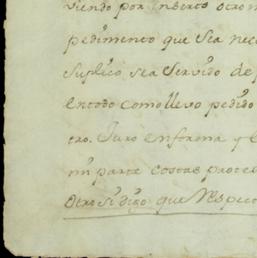 viendo por inserto otro
pedimento que sea nec
suplico sea servido de
en todo como llevo pedido
tro. Juro en forma y
mi parte costas protes
otro si digo que respec